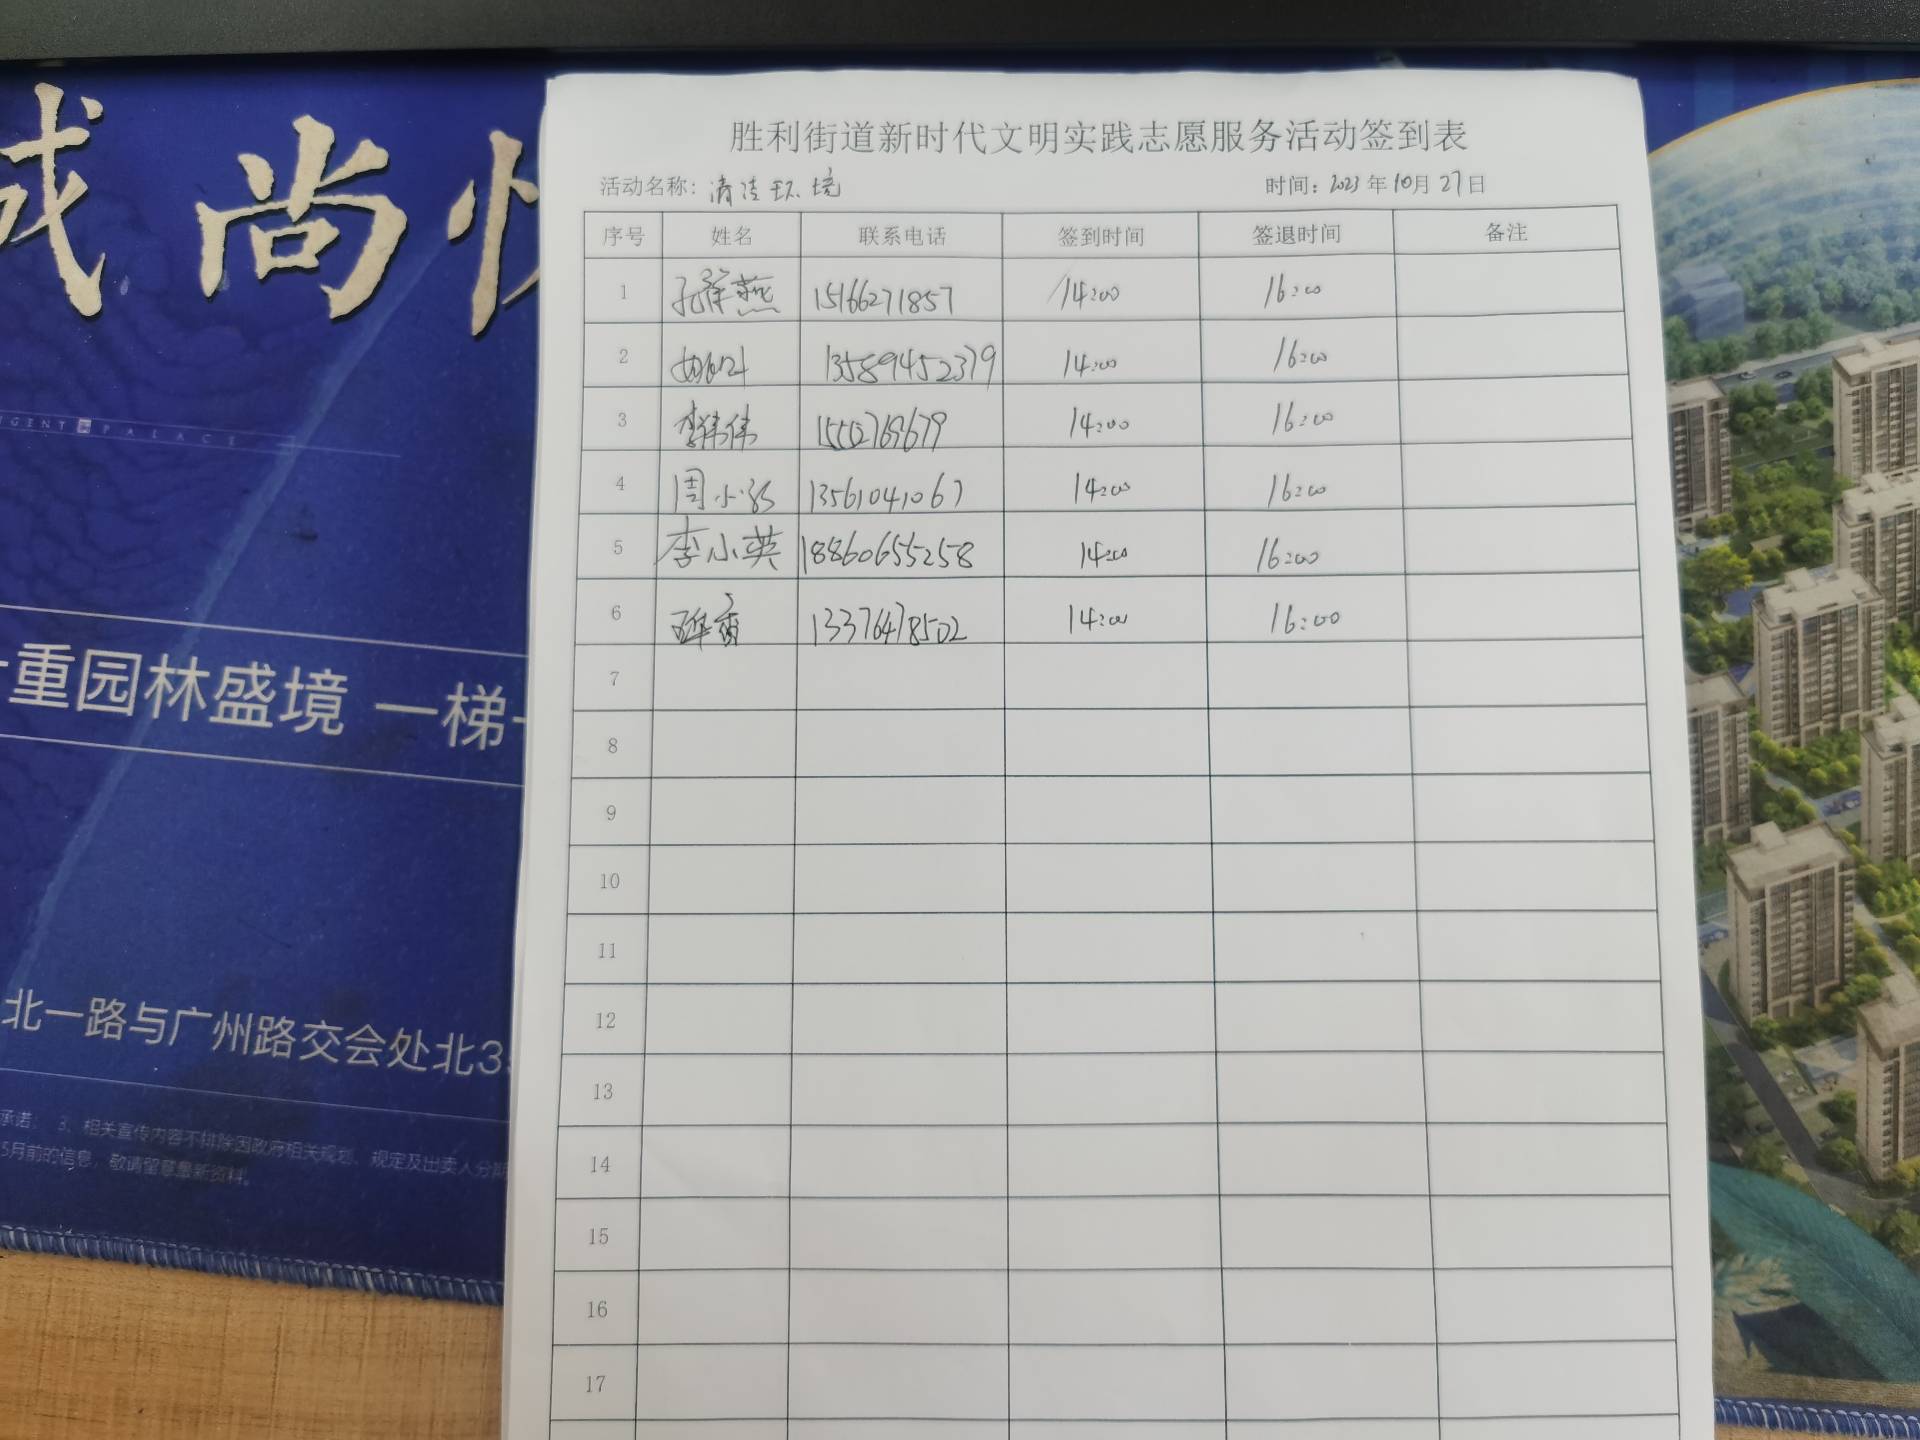 城 尚
IGENT PALACE
重园林盛境 一梯
北一路与广州路交会处北3
承诺： 3、相关宣传内容不排除因政府相关规划、规定及出卖人分
5月前的信息，敬请留意最新资料。
胜利街道新时代文明实践志愿服务活动签到表
活动名称：清洁环境 时间：2023年10月27日
序号 姓名 联系电话 签到时间 签退时间 备注
1 15166271857 14:00 16:00
2 13589452379 14:00 16:00
3 李伟伟 14:00 16:00
4 周小 13561041067 14:00 16:00
5 李小英 18860655258 14:00 16:00
6 13376478502 14:00 16:00
7
8
9
10
11
12
13
14
15
16
17